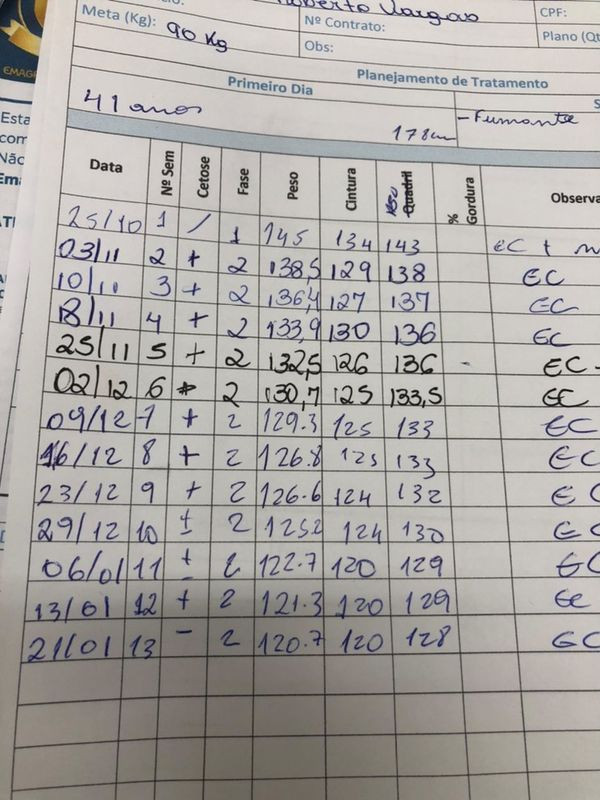 Roberto Vargas CPF:
Meta (Kg): 90 Kg Nº Contrato: Plano (Qt
Obs:
EMAG
Planejamento de Tratamento
Primeiro Dia
41 anos 178cm - Fumante
Esta
com
Não
Ema
Data Nº Sem Cetose Fase Peso Cintura Quadril % Gordura Observa
25/10 1 / 1 145 134 143 EC +
03/11 2 + 2 138,5 129 138 EC
10/11 3 + 2 136,4 127 137 EC
18/11 4 + 2 133,9 130 136 EC
25/11 5 + 2 132,5 126 136 - EC -
02/12 6 + 2 130,7 125 133,5 EC
09/12 7 + 2 129.3 125 133 EC
16/12 8 + 2 126.8 125 133 EC
23/12 9 + 2 126.6 124 132 EC
29/12 10 ± 2 125.2 124 130 EC
06/01 11 ± 2 122.7 120 129 EC
13/01 12 + 2 121.3 120 129 EC
21/01 13 - 2 120.7 120 128 EC